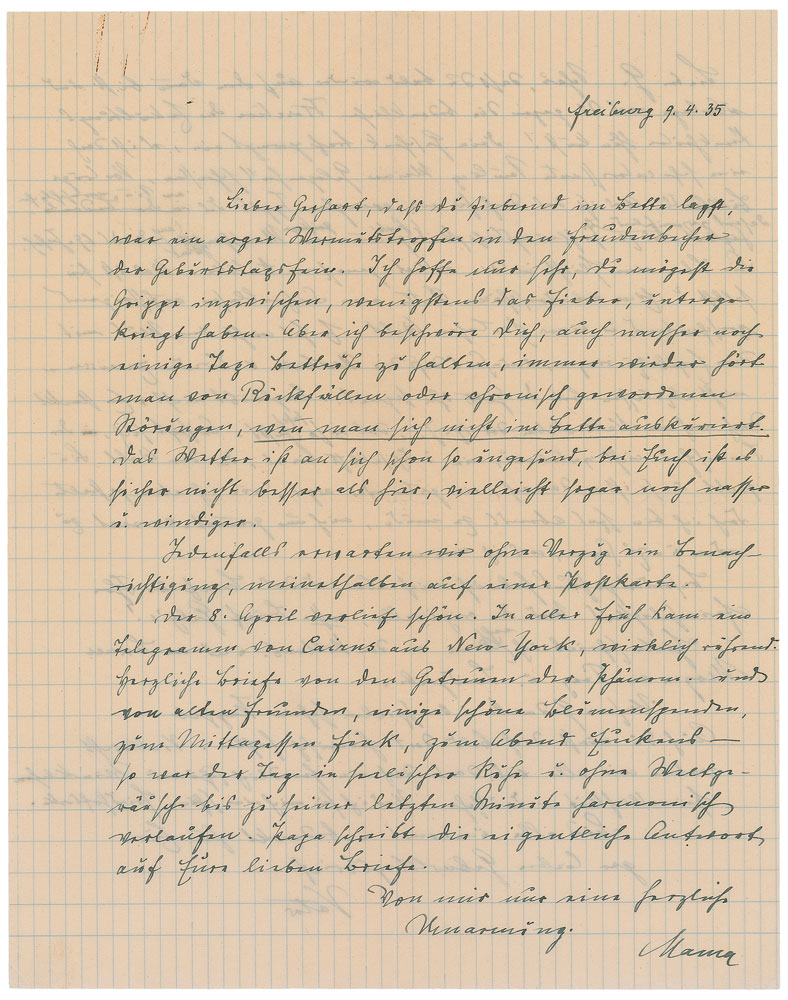 Freiburg 9. 4. 35
Lieber Gerhart, daß du fiebernd im Bette lagst,
war ein arger Wermutstropfen in den Freudenbecher
der Geburtstagsfeier. Ich hoffe nur sehr, du mögest die
Grippe inzwischen, wenigstens das Fieber, unterge-
kriegt haben. Aber ich beschwöre Dich, auch nachher noch
einige Tage Bettruhe zu halten, immer wieder hört
man von Rückfällen oder chronisch gewordenen
Störungen, wen̄ man sich nicht im Bette auskuriert.
Das Wetter ist an sich schon so ungesund, bei Euch ist es
sicher nicht besser als hier, vielleicht sogar noch nasser
u. windiger.
Jedenfalls erwarten wir ohne Verzug ein Benach-
richtigung, meinethalben auf einer Postkarte.
Der 8. April verlief schön. In aller Früh kam ein
Telegramm von Cairns aus New-York, wirklich rührend.
Herzliche Briefe von den Getreuen der Phänom. und
von alten Freunden, einige schöne Blumenspenden,
zum Mittagessen Fink, zum Abend Euckens —
so war der Tag in seelischer Ruhe u. ohne Weltge-
räusch bis zu seiner letzten Minute harmonisch
verlaufen. Papa schreibt die eigentliche Antwort
auf Eure lieben Briefe.
Von mir nur eine herzliche
Umarmung.
Mama